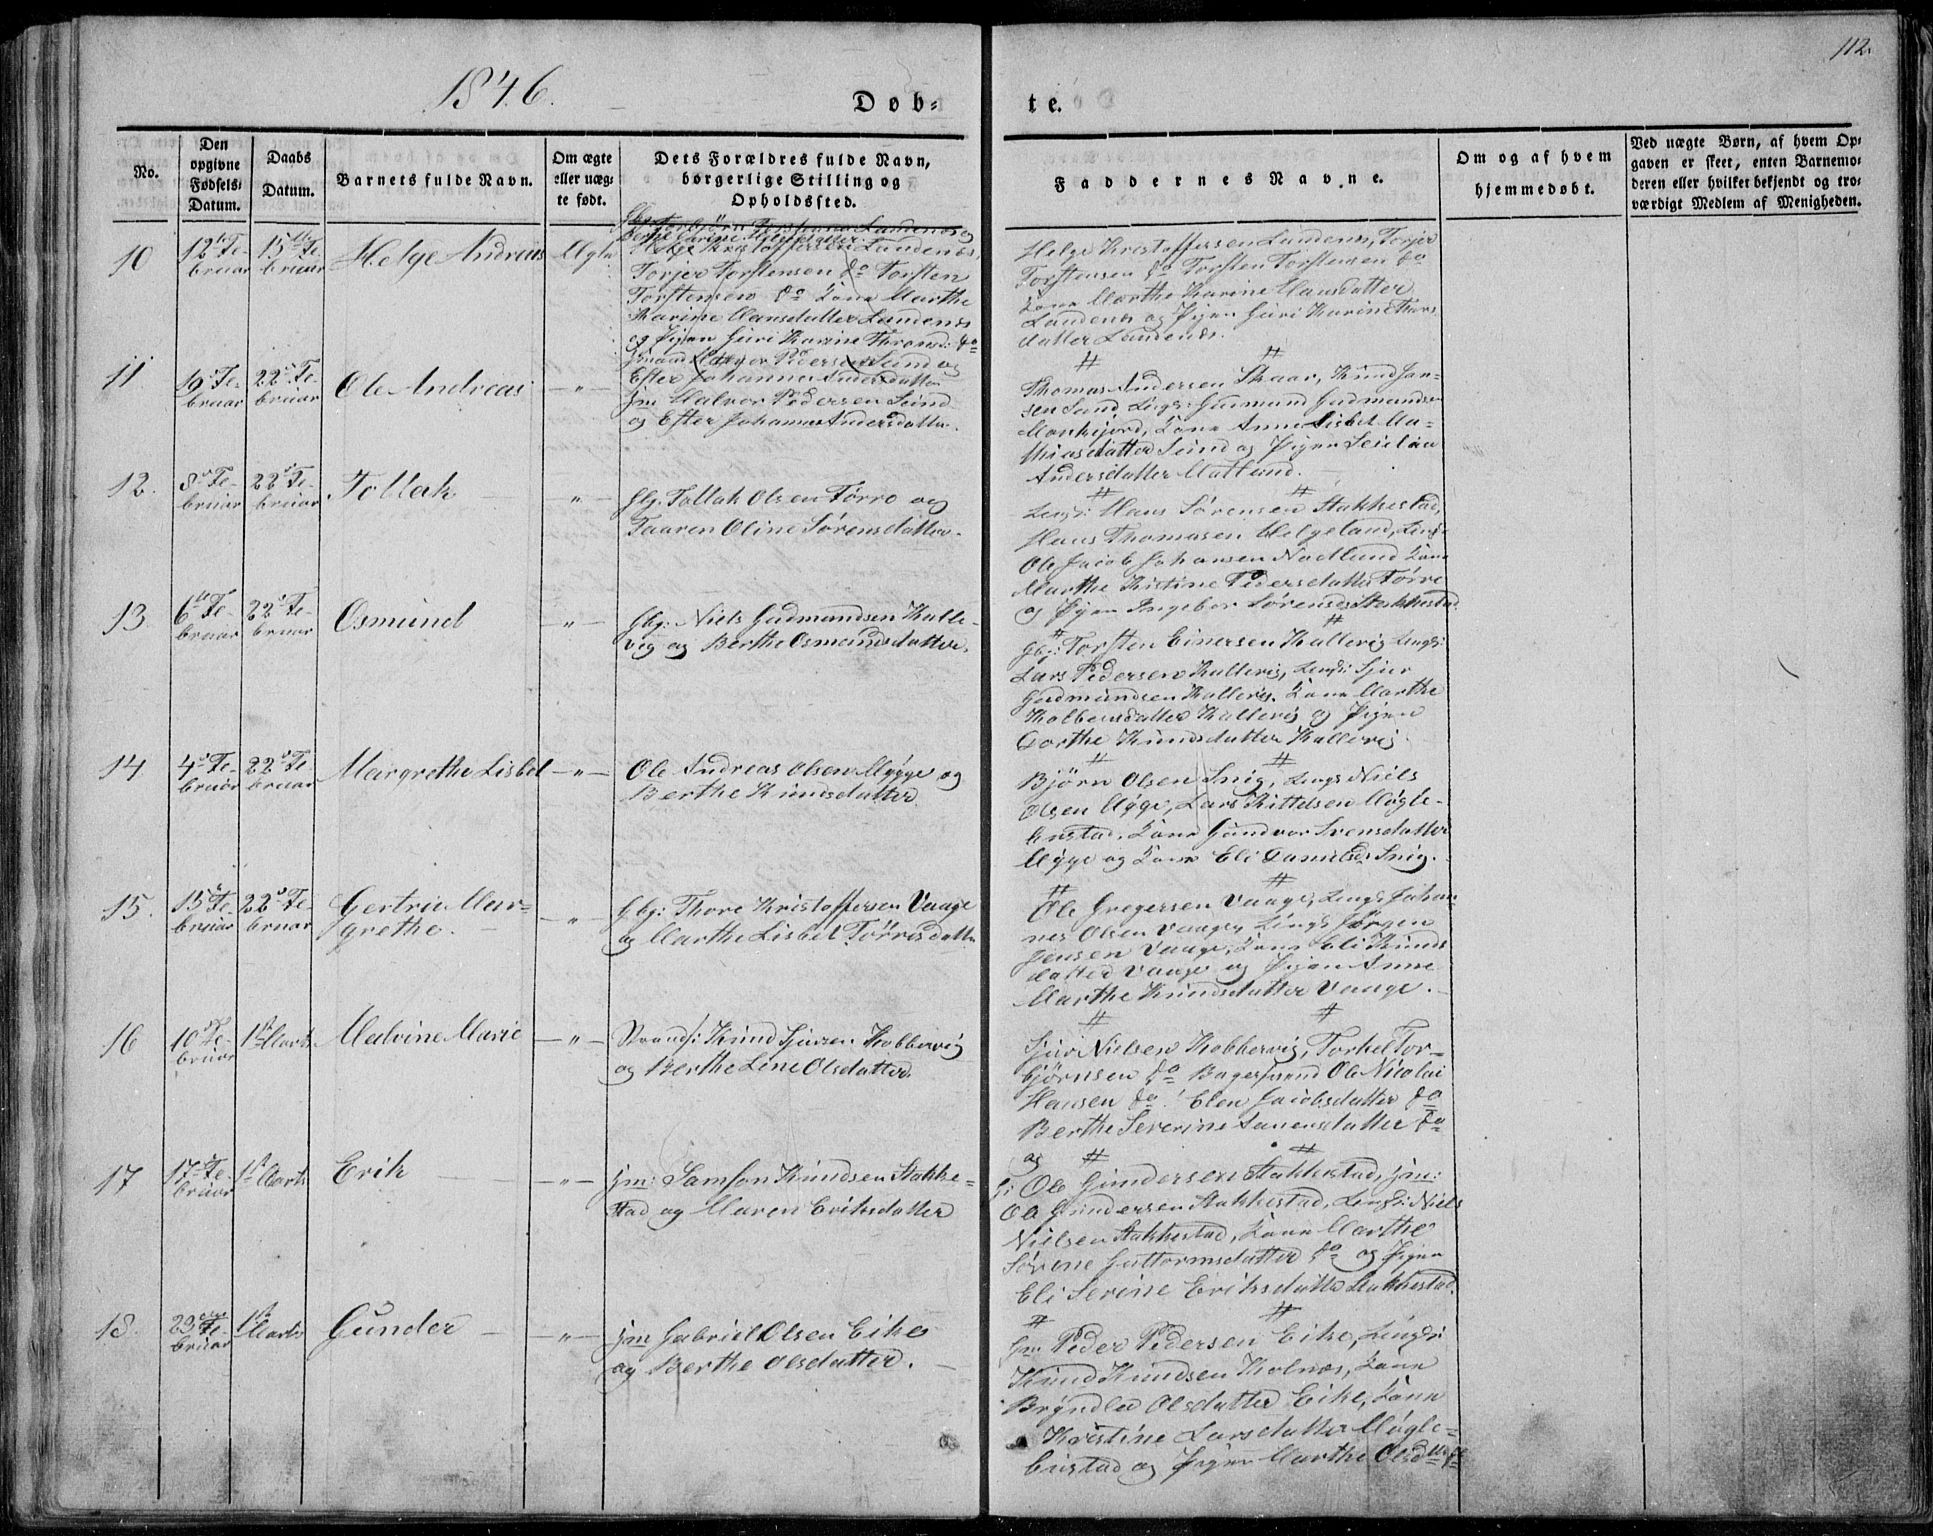 1846.
Døb-
te.
112.
No.
Den
opgivne
Fødsels-
Datum.
Daabs
Datum.
Barnets fulde Navn.
Om ægte
eller uæg-
te født.
Dets Forældres fulde Navn,
borgerlige Stilling og
Opholdssted.
Faddernes Navne.
Om og af hvem
hjemmedøbt.
Ved uægte Børn, af hvem Op-
gaven er skeet, enten Barnemo-
deren eller hvilket bekjendt og tro-
værdigt Medlem af Menigheden.
10
12te Fe-
bruar
15de Fe-
bruar
Helge Andreas
Torjer Torstensen do Torsten
Torstensen do Kone Marthe
Karine Hansdatter Landenes
og Pigen Guri Karine do
Helge Kristoffersen Landenes, Torjer
Torstensen do Torsten Torstensen do
Kone Marthe Karine Hansdatter
Landenes og Pigen Guri Karine Thors
datter Landenes.
11
19de Fe-
bruar
22de Fe-
bruar
Ole Andreas
- " -
Halvor Pedersen Sund og
Ester Johanne Andersdatter
Jm Halvor Pedersen Sund
og Ester Johanne Andersdatter.
Thomas Andersen Skaar, Knud Jan-
sen Sund, Ungk: Gudmund Gudmundsen
Kone Anne Lisbet Ma-
thiasdatter Sund og Pigen
Andersdatter Matland.
12.
8de Fe-
bruar
22de Fe-
bruar
Tollak
- " -
Gbg: Tollak Olsen Tørre og
Taaren Oline Sørensdatter.
Ungk: Hans Sørensen Stakkestad,
Hans Thomasen Helgeland, Ungk:
Ole Jacob Johansen Kone
Marthe Kistine Pedersdatter Tørre
og Pigen Ingebor Sørensd. Stakkestad.
13
6te Fe-
bruar
22de Fe-
bruar
Osmund
- " -
Gbg: Niels Gudmundsen Kalle-
vig og Berthe Osmundsdatter.
Gbg: Torsten Einersen Kallevig Ungk:
Lars Pedersen Kallevig, Ungk: Sjur
Gudmundsen Kallevig. Kone Marthe
Kolbensdatter Kallevig og Pigen
Dorthe Knudsdatter Kallevig.
14
4de Fe-
bruar
22de Fe-
bruar
Margrethe Lisbet
- " -
Ole Andreas Olsen Mygge og
Berthe Knudsdatter
Bjørn Olsen Snig, Ungk: Niels
Olsen Mygge, Lars Kittelsen Møgle-
bustad, Kone Gundvor Svensdatter
Mygge og Kone Eli Danielsd: Snig.
15.
15de Fe-
bruar
22de Fe-
bruar
Gertrie Mar-
grethe.
- " -
Gbg: Thore Kristoffersen Vaage
og Marthe Lisbet Tørresdatter
Ole Gregersen Vaage, Ungk: Johan-
nes Olsen Vaage, Ungk: Jørgen
Jensen Vaage, Kone Eli Knuds
datter Vaage og Pigen Anne
Marthe Knudsdatter Vaage.
16
10de Fe-
bruar
1ste Marts
Malvine Marie
- " -
Strands: Knud Sjursen Kobbervig
og Berthe Line Olsdatter.
Sjur Nielsen Kobbervig, Torkel Tor-
bjørnsen do Bagersvend Ole Nicolai
Hansen do Elen Jacobsdatter do
og Berthe Severine datter do
17
17de Fe-
bruar
1ste Marts
Erik
- " -
Jm: Samson Knudsen Stakke-
stad og Maren Eriksdatter
G: Ole Gundersen Stakkestad, Jm:
Ole Gundersen Stakkestad, Ungk: Niels
Nielsen Stakkestad, Kone Marthe
Sørine Guttormsdatter do og Pigen
Eli Serine Eriksdatter Stakkestad.
18.
23de Fe-
bruar
1ste Marts
Gunder
- " -
Jm Gabriel Olsen Eike
og Berthe Olsdatter.
Jm Peder Pedersen Eike, Ungk:
Knud Knudsen Kolnæs, Kone
Bryndlee Olsdatter Eike, Kone
Kristine Larsdatter Møgle-
bustad og Pigen Marthe Olsdtr do